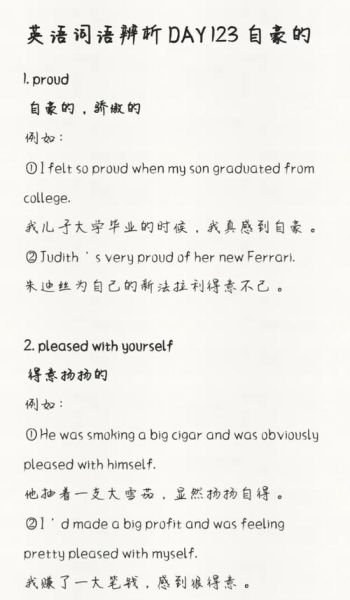 英语词语辨析DAY 123 自豪的
1. proud
自豪的，骄傲的
例如：
①I felt so proud when my son graduated from
college.
我儿子大学毕业的时候，我真感到自豪。
②Judith's very proud of her new Ferrari.
朱迪丝为自己的新法拉利得意不已。
2. pleased with yourself
得意扬扬的
例如：
①He was smoking a big cigar and was obviously
pleased with himself.
他抽着一支大雪茄，显然扬扬自得。
②I'd made a big profit and was feeling
pretty pleased with myself.
我赚了一大笔钱，感到狠得意。